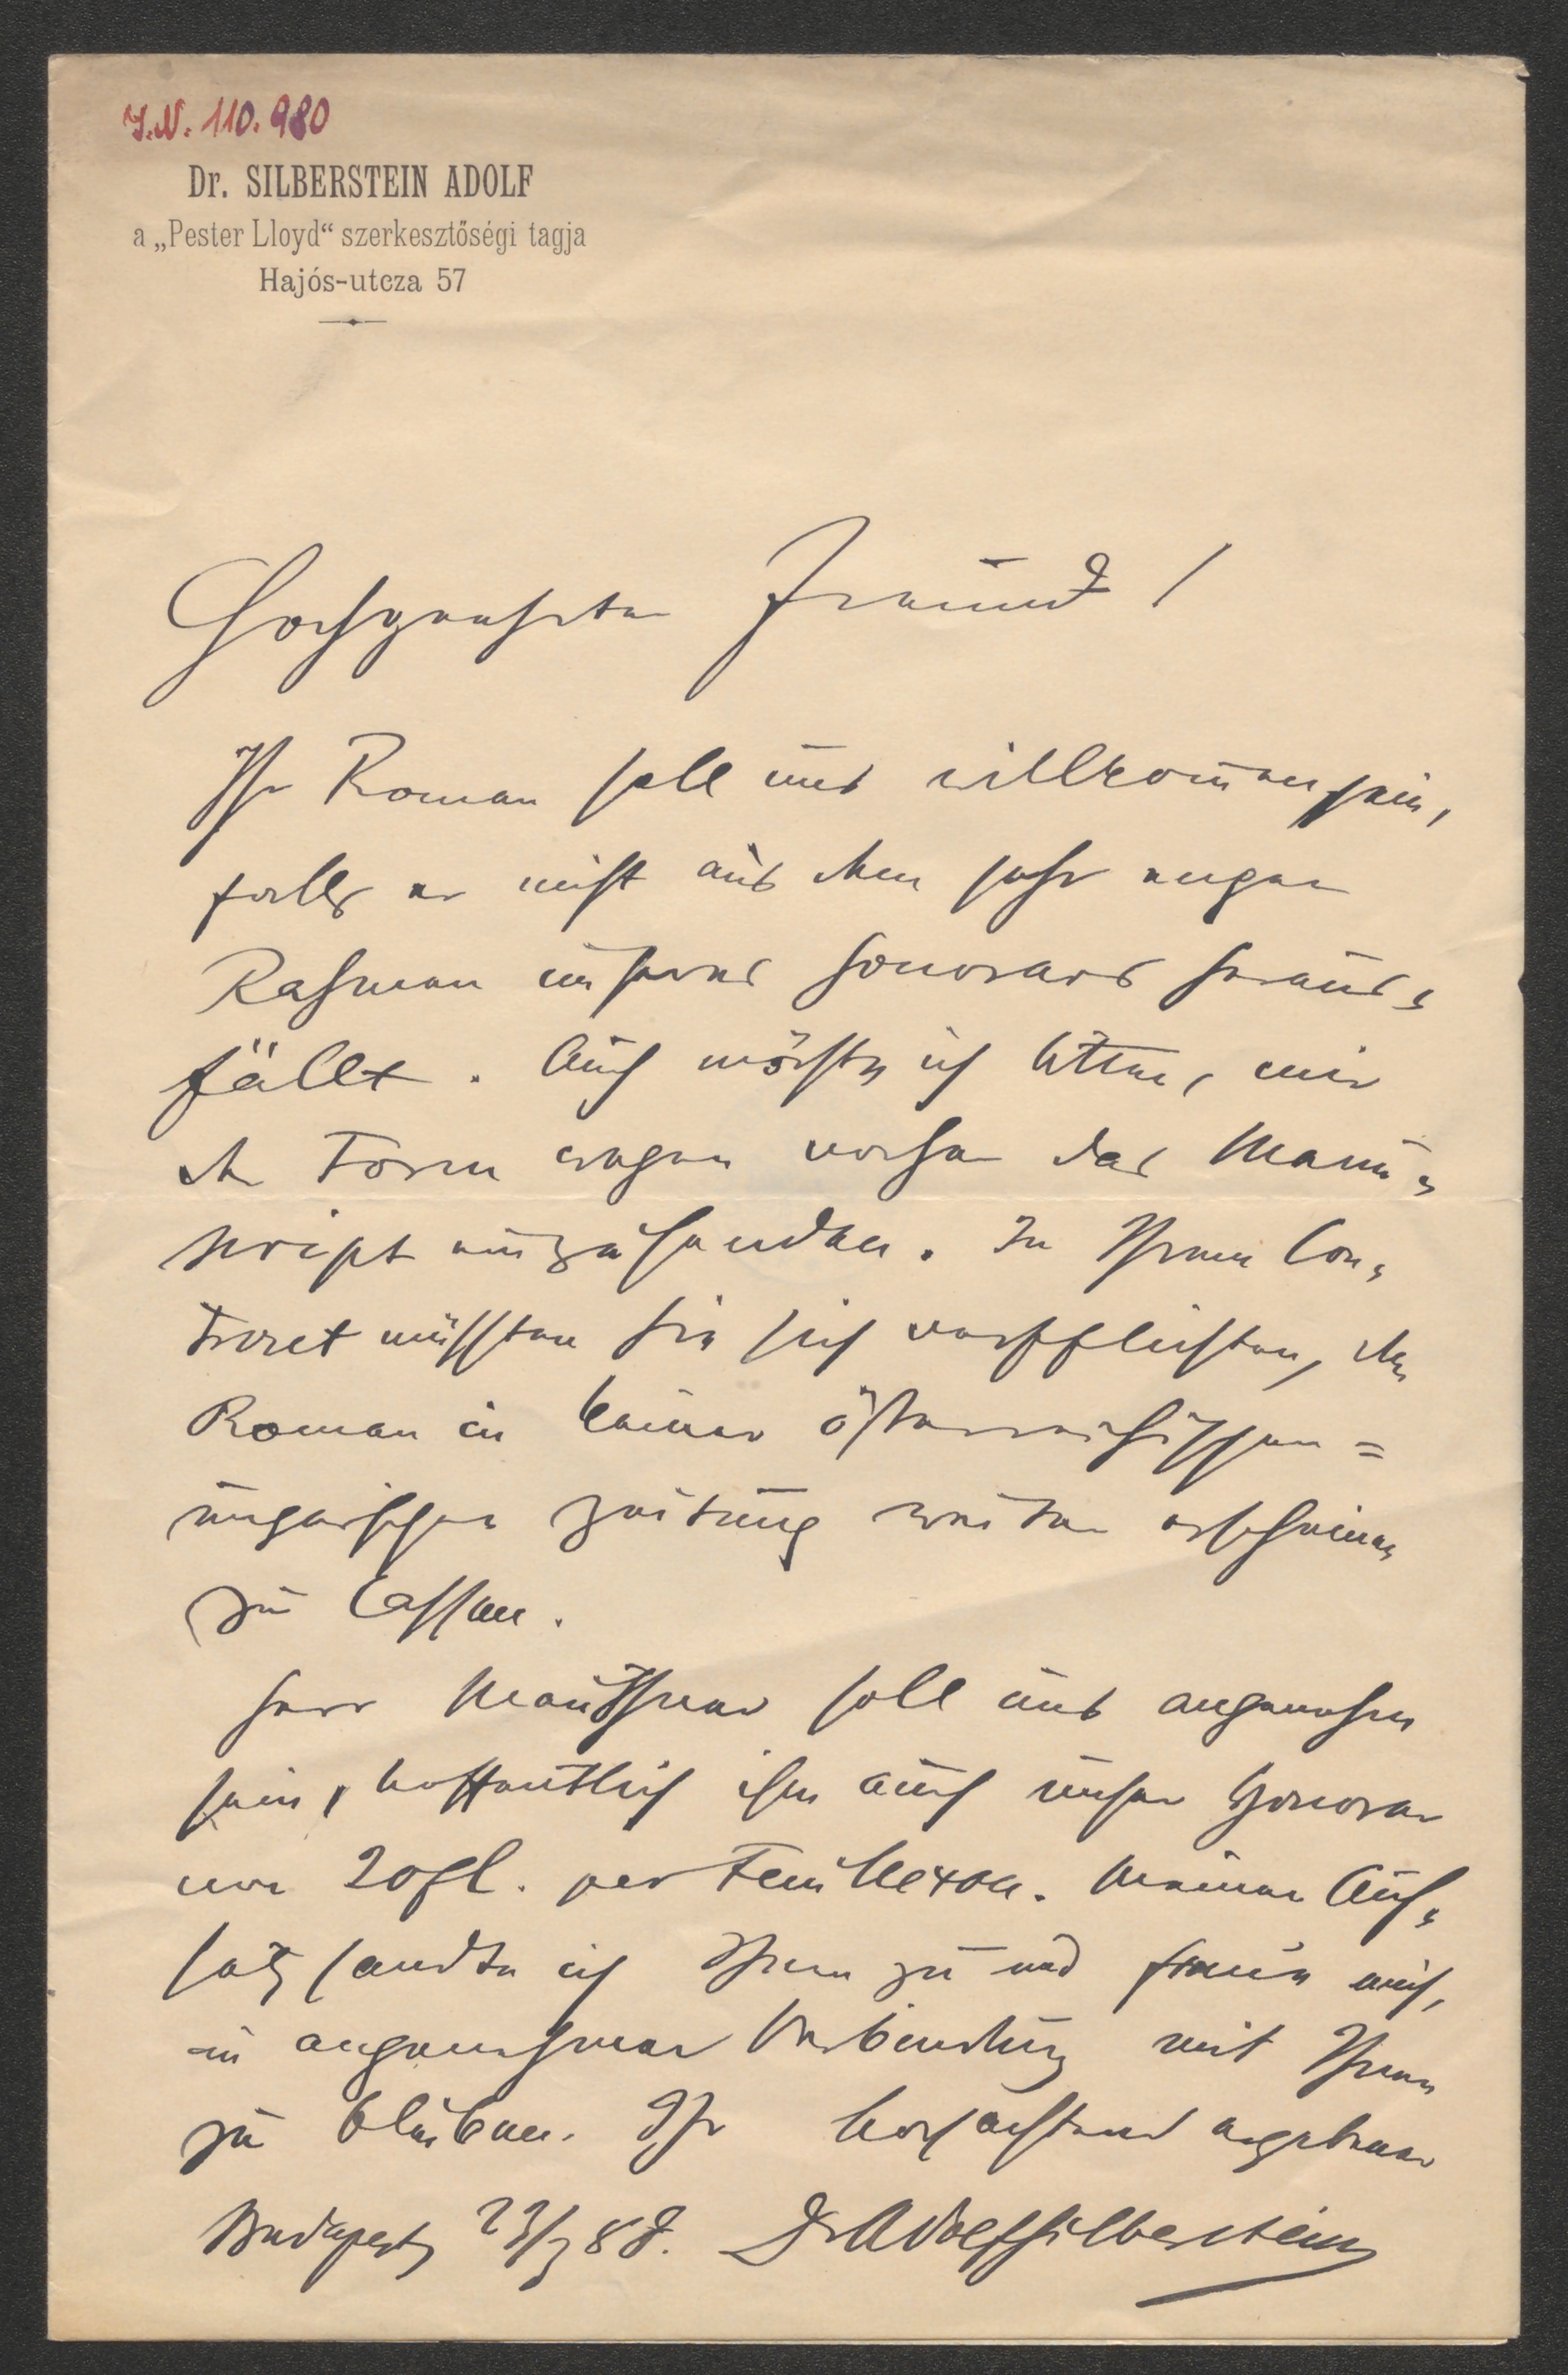 J.N. 110.980
Dr. SILBERSTEIN ADOLF
a „Pester Lloyd“ szerkesztőségi tagja
Hajós-utcza 57
Hochgeehrter Freund!
Ihr Roman soll uns willkom̄en sein,
falls er nicht aus dem sehr engen
Rahmen unseres Honorars heraus-
fällt. Auch möchte ich bitten, mir
der Form wegen vorher das Manu-
script einzusenden. In Ihrem Con-
tract müssten Sie sich verpflichten, den
Roman in keiner österreichischen=
ungarischen Zeitung weiter erscheinen
zu lassen.
Herr Mauthner soll uns angenehm
sein, hoffentlich ihm auch unser Honorar
von 20 fl. per Feuilleton. Meinen Auf-
satz sandte ich Ihnen zu und freue mich,
in angenehmer Verbindung mit Ihnen
zu bleiben. Ihr hochachtend ergebener
Budapest 23/3 88. Dr Adolf Silberstein